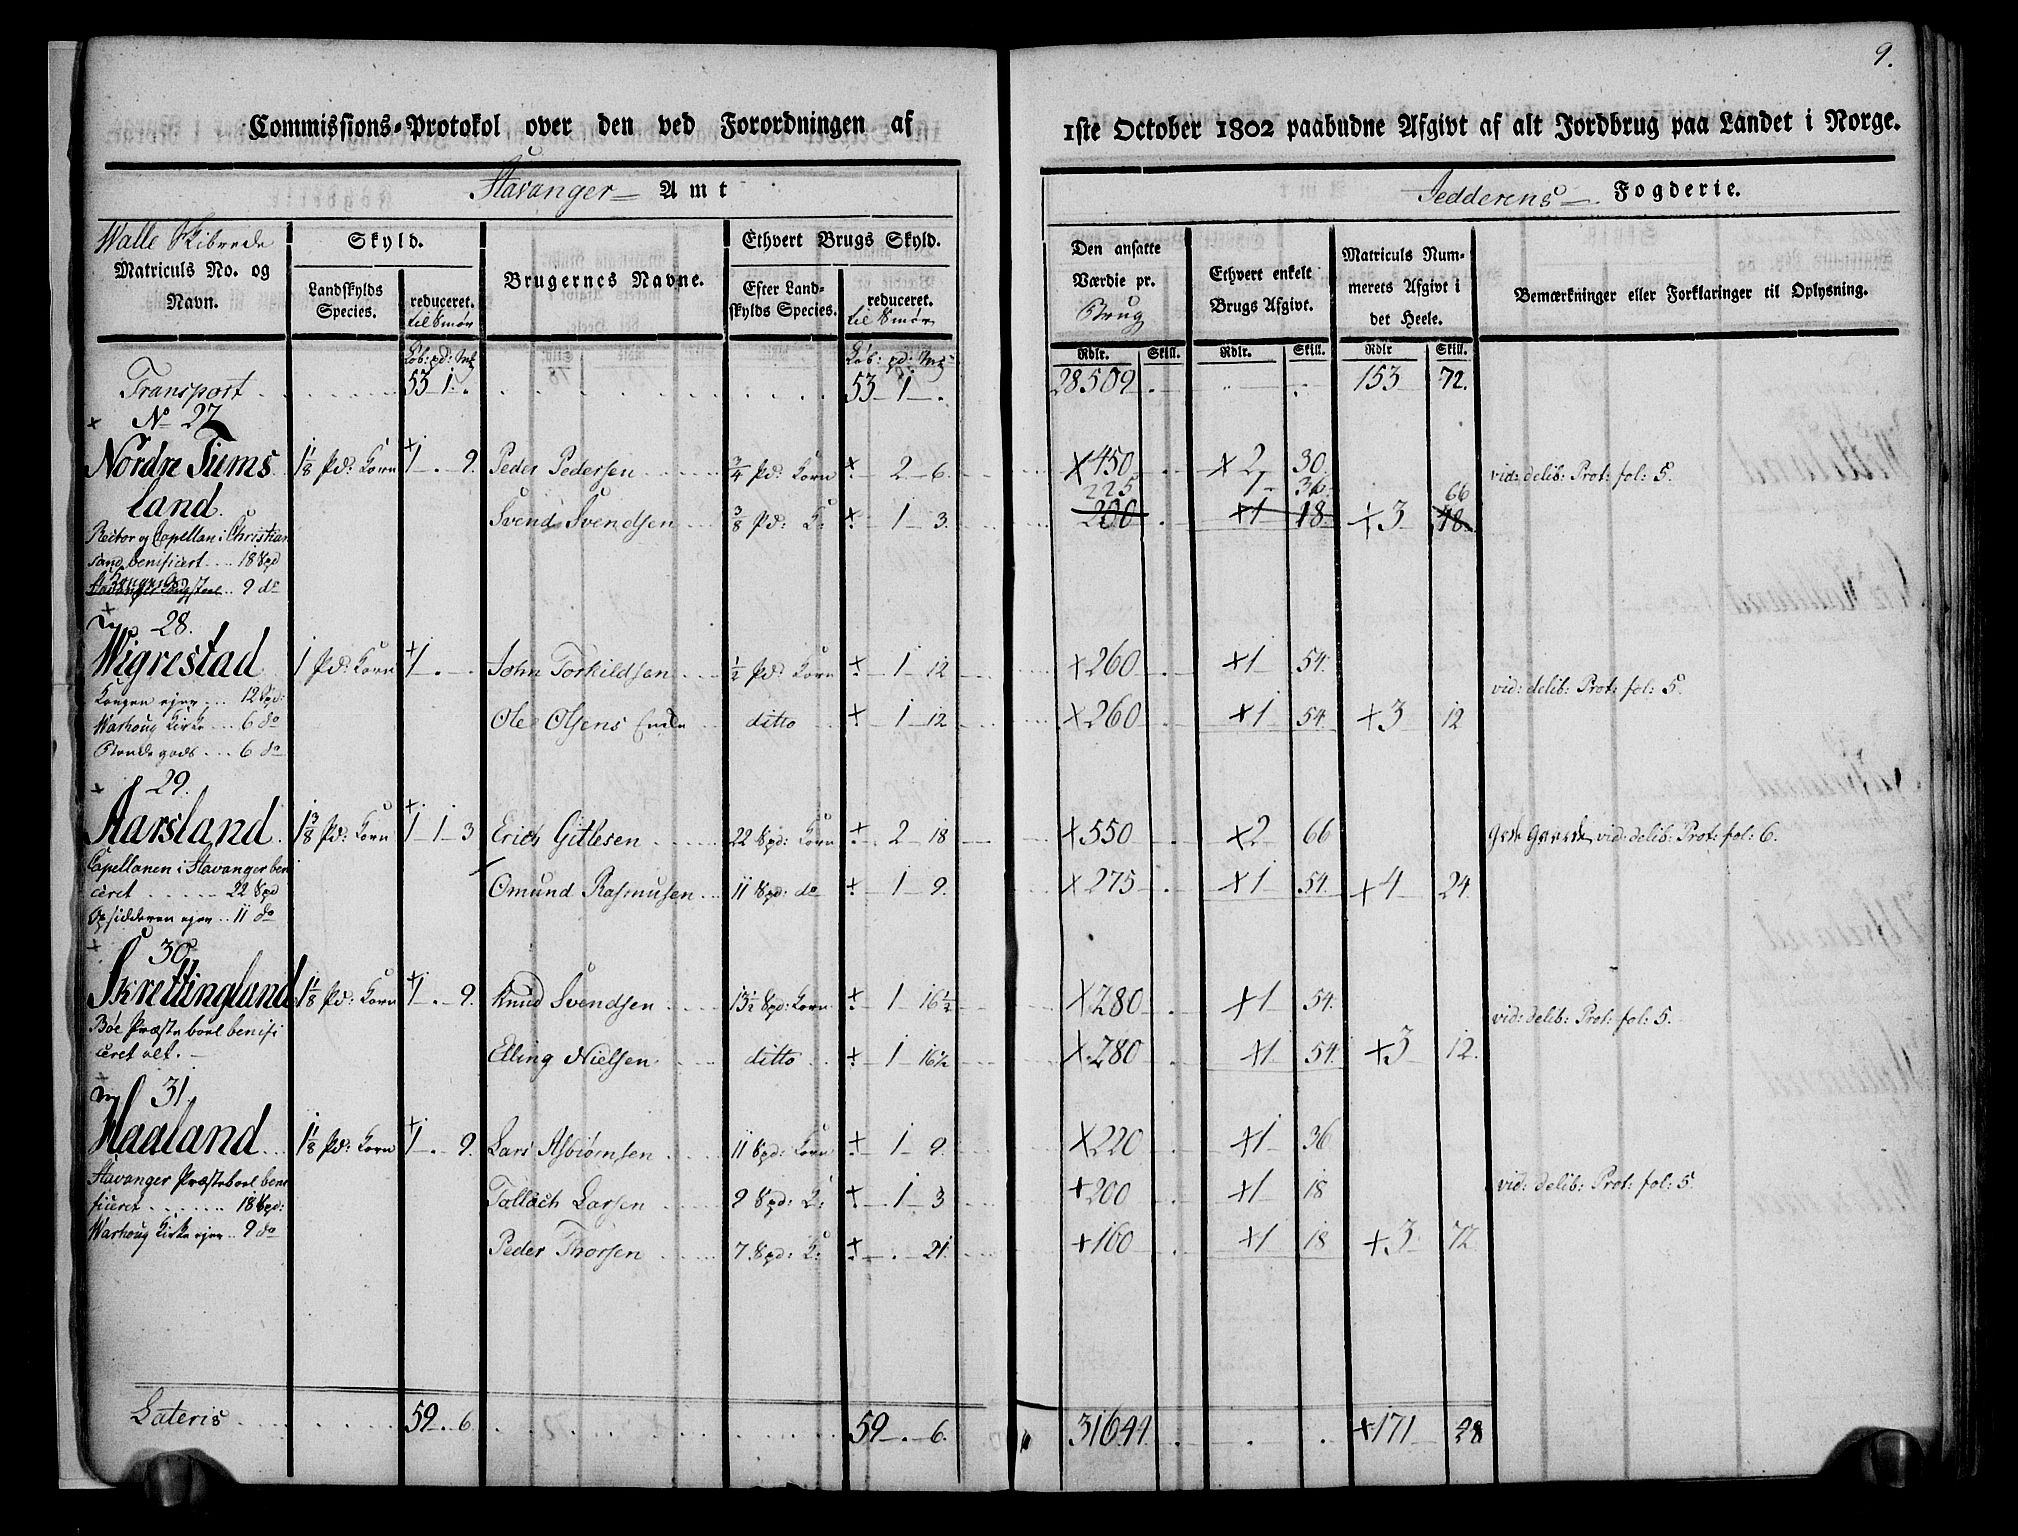 9.
Commissions-Protokol over den ved Forordningen af 1ste October 1802 paabudne Afgivt af alt Jordbrug paa Landet i Norge.
Stavanger Amt
Jedderens Fogderie.
Walle Skibrede
Matriculs No. og Navn.
Skyld.
Landskylds Species.
reduceret. til Smør
Brugernes Navne.
Ethvert Brugs Skyld.
Efter Landskylds Species.
reduceret. til Smør
Den ansatte Værdie pr. Brug
Ethvert enkelt Brugs Afgivt.
Matriculs Nummerets Afgivt i det Heele.
Bemærkninger eller Forklaringer til Oplysning.
Løb: pd: Mk Løb: pd: Mk Rdlr. Skill. Rdlr. Skill. Rdlr Skill.
Transport 53 1 . 53 1 . 28509 . 153 72.
No 27
Nordre Tiums 1 1/8 Pd: Korn 1 . 9. Peder Pedersen 3/4 Pd: Korn 2 6. 450 2 30. vid: delib: Prot: fol: 5.
225 1 36. 66
land. Svend Svendsen 3/8 Pd: K: 1 3. 200 1 18. 3 48.
Rector og Capellan i Christian
sand benificert 18 Spd
9 do
28.
Wigrestad 1 Pd: Korn 1 . . John Torkildsen 1/2 Pd: Korn 1 12 260 1 54.
Kongen ejer 12 Spd: vid: delib: Prot: fol: 5.
Warhoug Kirke 6 do Ole Olsens Enke ditto 1 12 260 1 54. 3 12
Bondegods 6 do
29.
Aarsland 1 3/8 Pd: Korn 1 1 3 Erich Gitlesen 22 Spd: Korn 2 18 550 2 66 vid: delib: Prot: fol: 6.
Capellanen i Stavanger beni
ceret 22 Spd Omund Rasmusen 11 Spd: do 1 9. 275 1 54. 4 24
Opsidderen ejer 11 do
30.
Skrettingland 1 1/8 Pd: Korn 1 . 9. Knud Svendsen 13 1/2 Spd: Korn 1 16 1/2 280 1 54.
Bøe Præsteboel benifi vid: delib: Prot: fol: 5.
ceret alt. Elling Nielsen ditto 1 16 1/2 280 1 54. 3 12.
31.
Haaland 1 1/8 Pd: Korn 1 . 9. Lars Asbiørnsen 11 Spd: Korn 1 9. 220 1 36
Stavanger Præsteboel beni vid: delib: Prot: fol: 5.
ficeret 18 Spd: Tollach Larsen 9 Spd: K: 1 3 200 1 18
Warhoug Kirke ejer 9 do Peder Thorsen 7 Spd: K: . 21. 160 1 18 3 72
Lateris 59 . 6 59 . 6. 31644 . . . 171 28